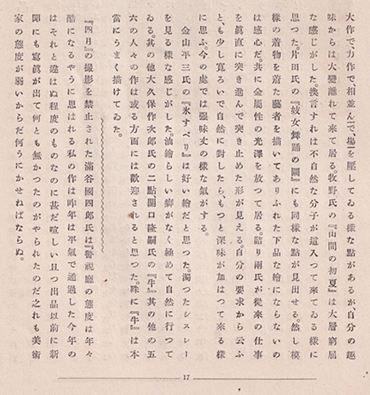 大作で、力作で、相並んで、場を壓してゐる樣な點があるが、自分の趣
味からは大變離れて來て居る。牧野氏の『山間の初夏』は大層窮屈
な感じがした。換言すれば不自然な分子が這入つて來てゐる樣に
思つた。片田氏の『妓女舞踊の圖』にも同樣な點が見出せる。然し模
樣の着物を着た藝者を描いてありふれた下品な繪にならないの
は感心だ。共に金屬性の光澤を放つて居る。詰り兩氏が從來の仕事
を眞直に突き進んで突き止めた形が見える。自分の要求から云ふ
と、も少し寛ろいで自然に對したら、もつと深味が加はつて來る樣
に思ふ。今の處では强味丈の樣な氣がする。
金山平三氏の『氷すべり』は好い繪だと思つた。濁つたシスレー
を見る樣な感じがした。油繪らしい癖がなく極めて自然に行つて
ゐる。其の他大久保作次郎の二點、關口隆嗣氏の『牛』其の他の五
六の人々の作は或る方面には歡迎されると思つた。殊に『牛』は本
當にうまく描けてゐた。
『四月』の撮影を禁止された滿谷國四郎氏は『警視廳の態度は年々
酷になるやうに思はれる私の作は昨年は平氣で通過した今年の
はそれと違はぬ程度のものなのに甚だ喧しい且つ出品以前に新
聞にも寫眞が出て何とも無かつたのがやられたのだ之れも美術
家の態度が弱いからだ何うにかせねばならぬ。
17